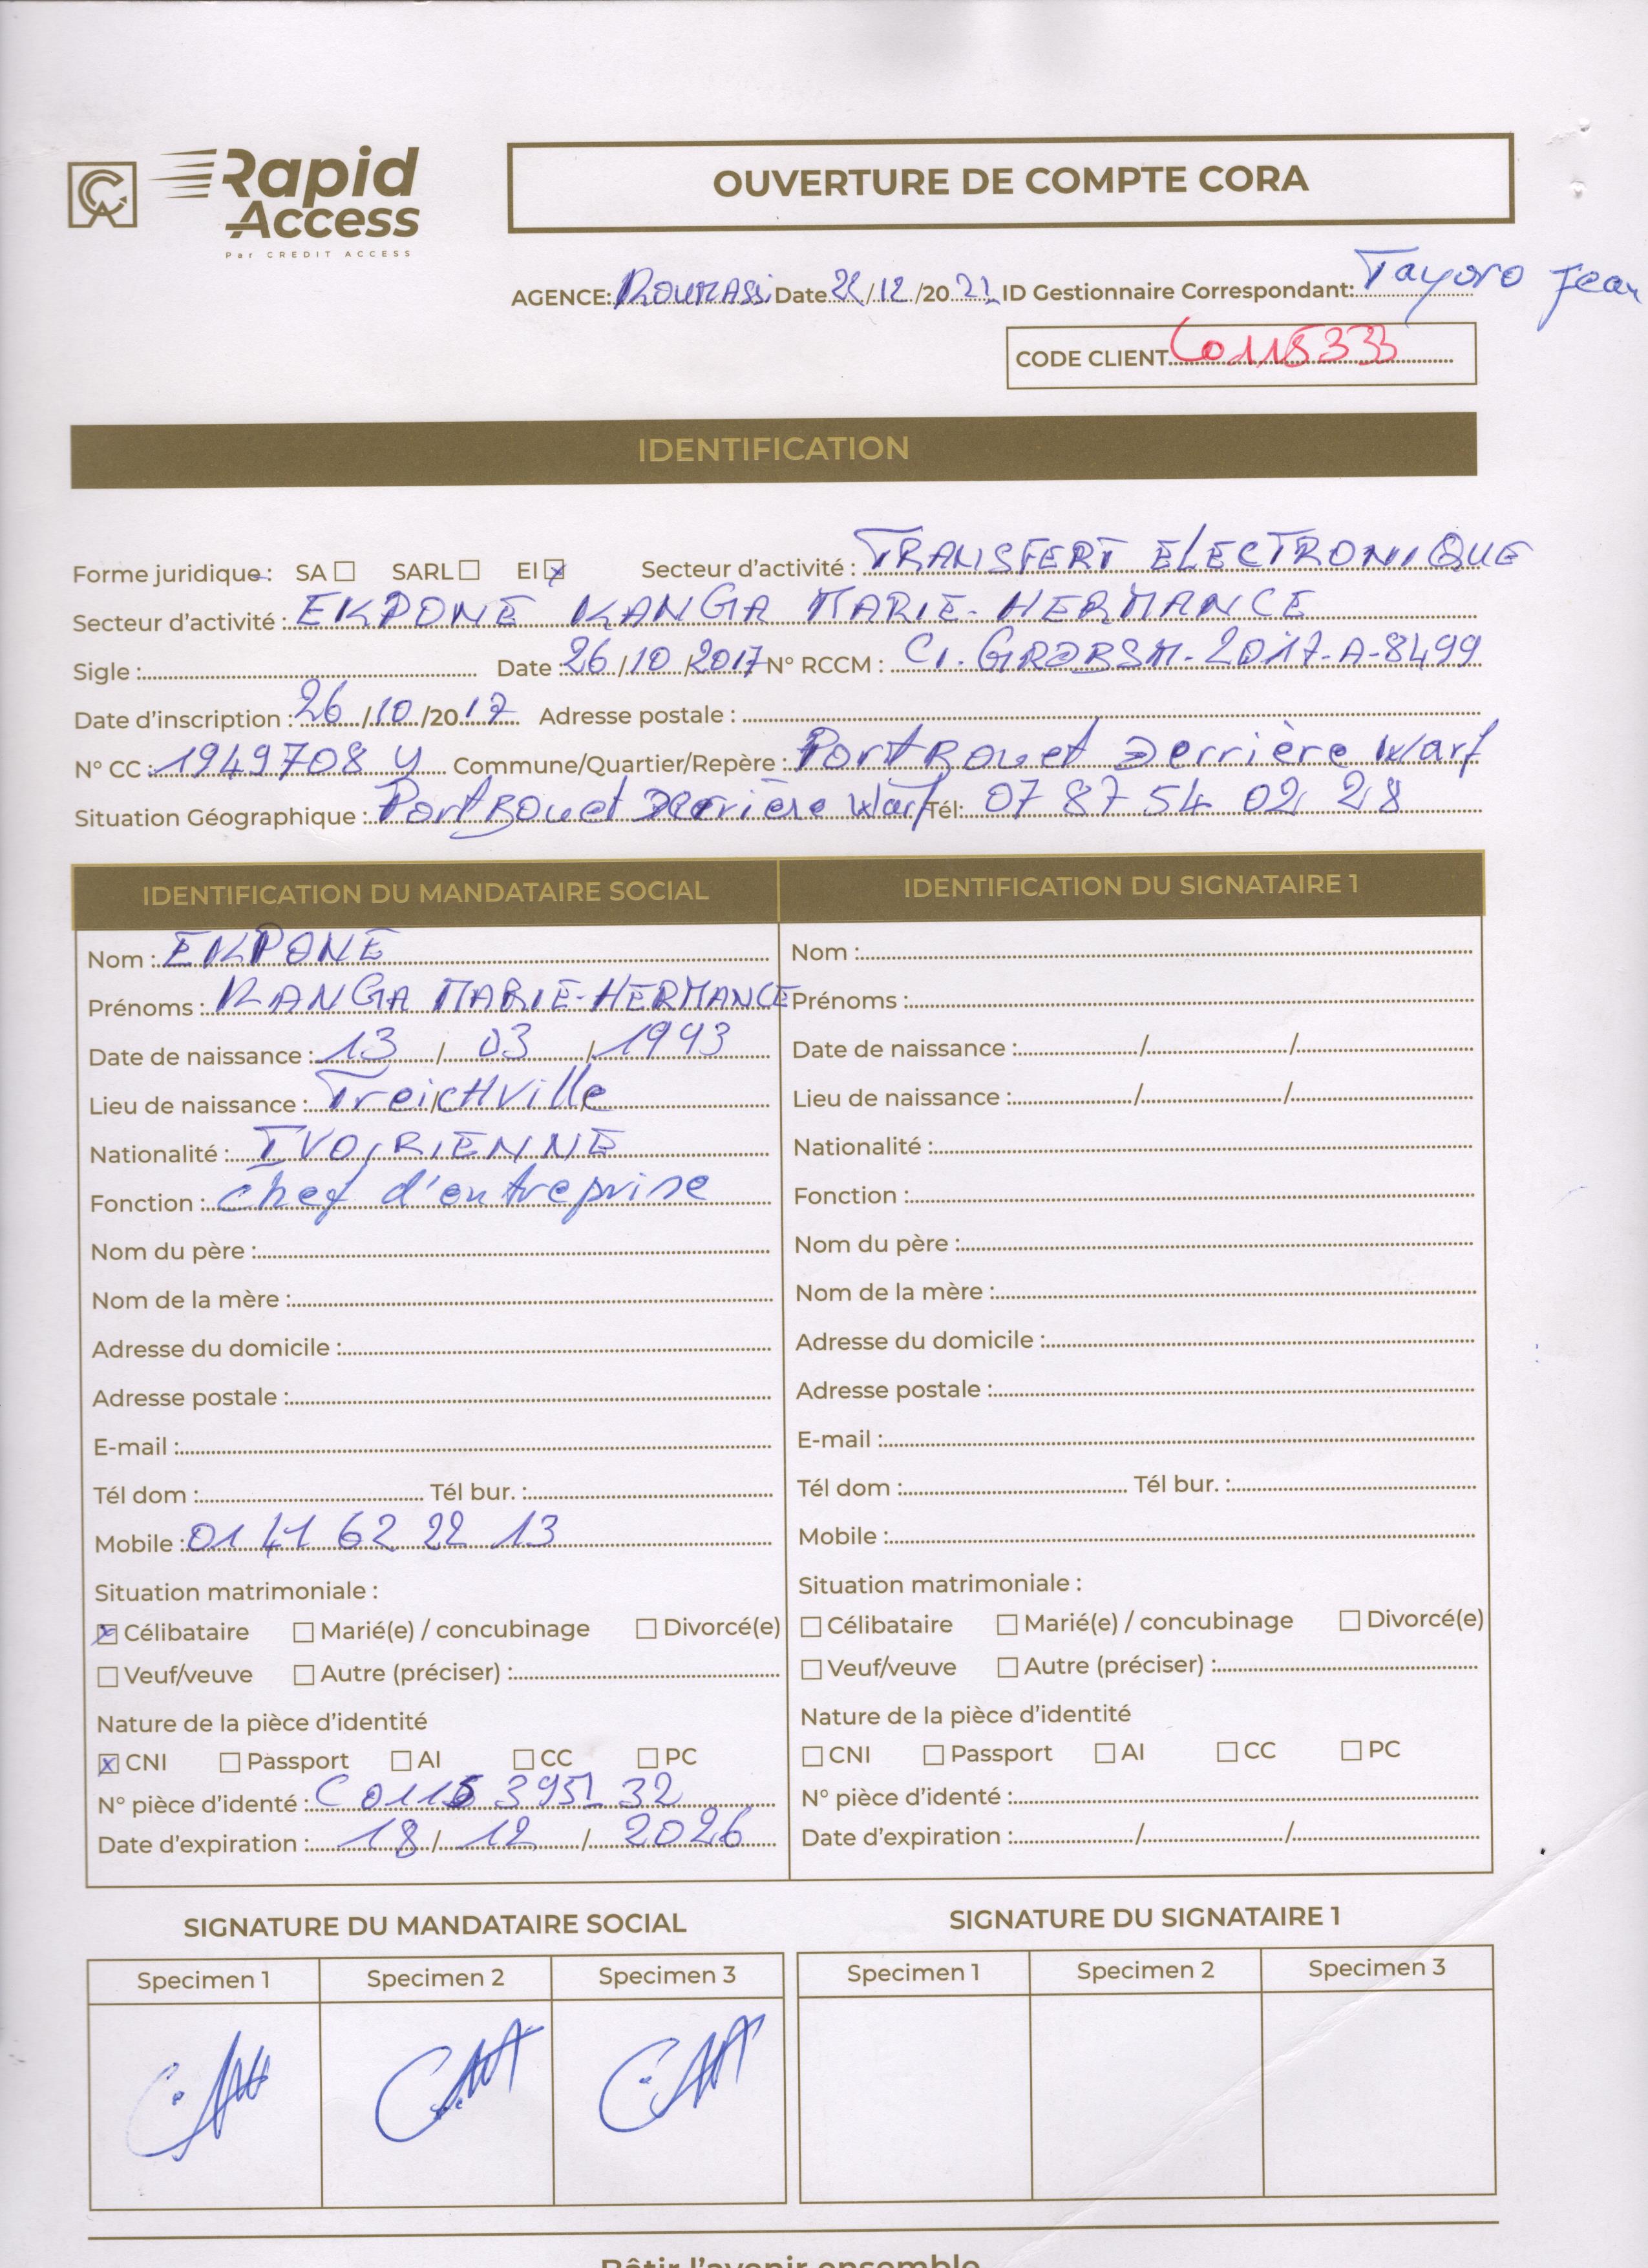 CA Rapid Access
Par CREDIT ACCESS
OUVERTURE DE COMPTE CORA
AGENCE: KOUMASSI Date /12/2021 ID Gestionnaire Correspondant: Tayoro Jean
CODE CLIENT C0115333
IDENTIFICATION
Forme juridique : SA ☐ SARL ☐ EI ☒ Secteur d'activité : TRANSFERT ELECTRONIQUE
Secteur d'activité : EKPONE KANGA MARIE-HERMANCE
Sigle : Date : 26/10/2017 N° RCCM : CI.GRDBSM-2017-A-8499
Date d'inscription : 26/10/2017 Adresse postale :
N° CC : 1949708 Y Commune/Quartier/Repère : PortBouet Derrière Warf
Situation Géographique : PortBouet Derrière Warf Tél: 07 87 54 02 28
IDENTIFICATION DU MANDATAIRE SOCIAL
Nom : EKPONE
Prénoms : KANGA MARIE-HERMANCE
Date de naissance : 13 / 03 / 1993
Lieu de naissance : TreicHville
Nationalité : IVOIRIENNE
Fonction : chef d'entreprise
Nom du père :
Nom de la mère :
Adresse du domicile :
Adresse postale :
E-mail :
Tél dom : Tél bur. :
Mobile : 01 41 62 22 13
Situation matrimoniale :
☒ Célibataire ☐ Marié(e) / concubinage ☐ Divorcé(e)
☐ Veuf/veuve ☐ Autre (préciser) :
Nature de la pièce d'identité
☒ CNI ☐ Passport ☐ AI ☐ CC ☐ PC
N° pièce d'identé :
Date d'expiration : 18 / 12 / 2026
IDENTIFICATION DU SIGNATAIRE 1
Nom :
Prénoms :
Date de naissance : / /
Lieu de naissance : / /
Nationalité :
Fonction :
Nom du père :
Nom de la mère :
Adresse du domicile :
Adresse postale :
E-mail :
Tél dom : Tél bur. :
Mobile :
Situation matrimoniale :
☐ Célibataire ☐ Marié(e) / concubinage ☐ Divorcé(e)
☐ Veuf/veuve ☐ Autre (préciser) :
Nature de la pièce d'identité
☐ CNI ☐ Passport ☐ AI ☐ CC ☐ PC
N° pièce d'identé :
Date d'expiration : / /
SIGNATURE DU MANDATAIRE SOCIAL
Specimen 1 Specimen 2 Specimen 3
SIGNATURE DU SIGNATAIRE 1
Specimen 1 Specimen 2 Specimen 3
Bâtir l'avenir ensemble